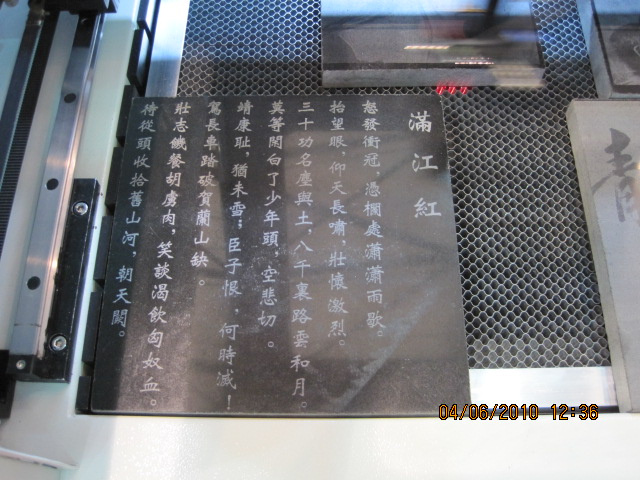 滿江紅
怒發衝冠 憑欄處瀟瀟雨歇。
抬望眼,仰天長嘯,壯懷激烈。
三十功名塵與土,八千裏路雲和月。
莫等閑白了少年頭,空悲切。
靖康耻,猶未雪;臣子恨,何時滅!
駕長車踏破賀蘭山缺。
壯志饑餐胡虜肉,笑談渴飲匈奴血。
待從頭收拾舊山河,朝天闕。
青
04/06/2010 12:36